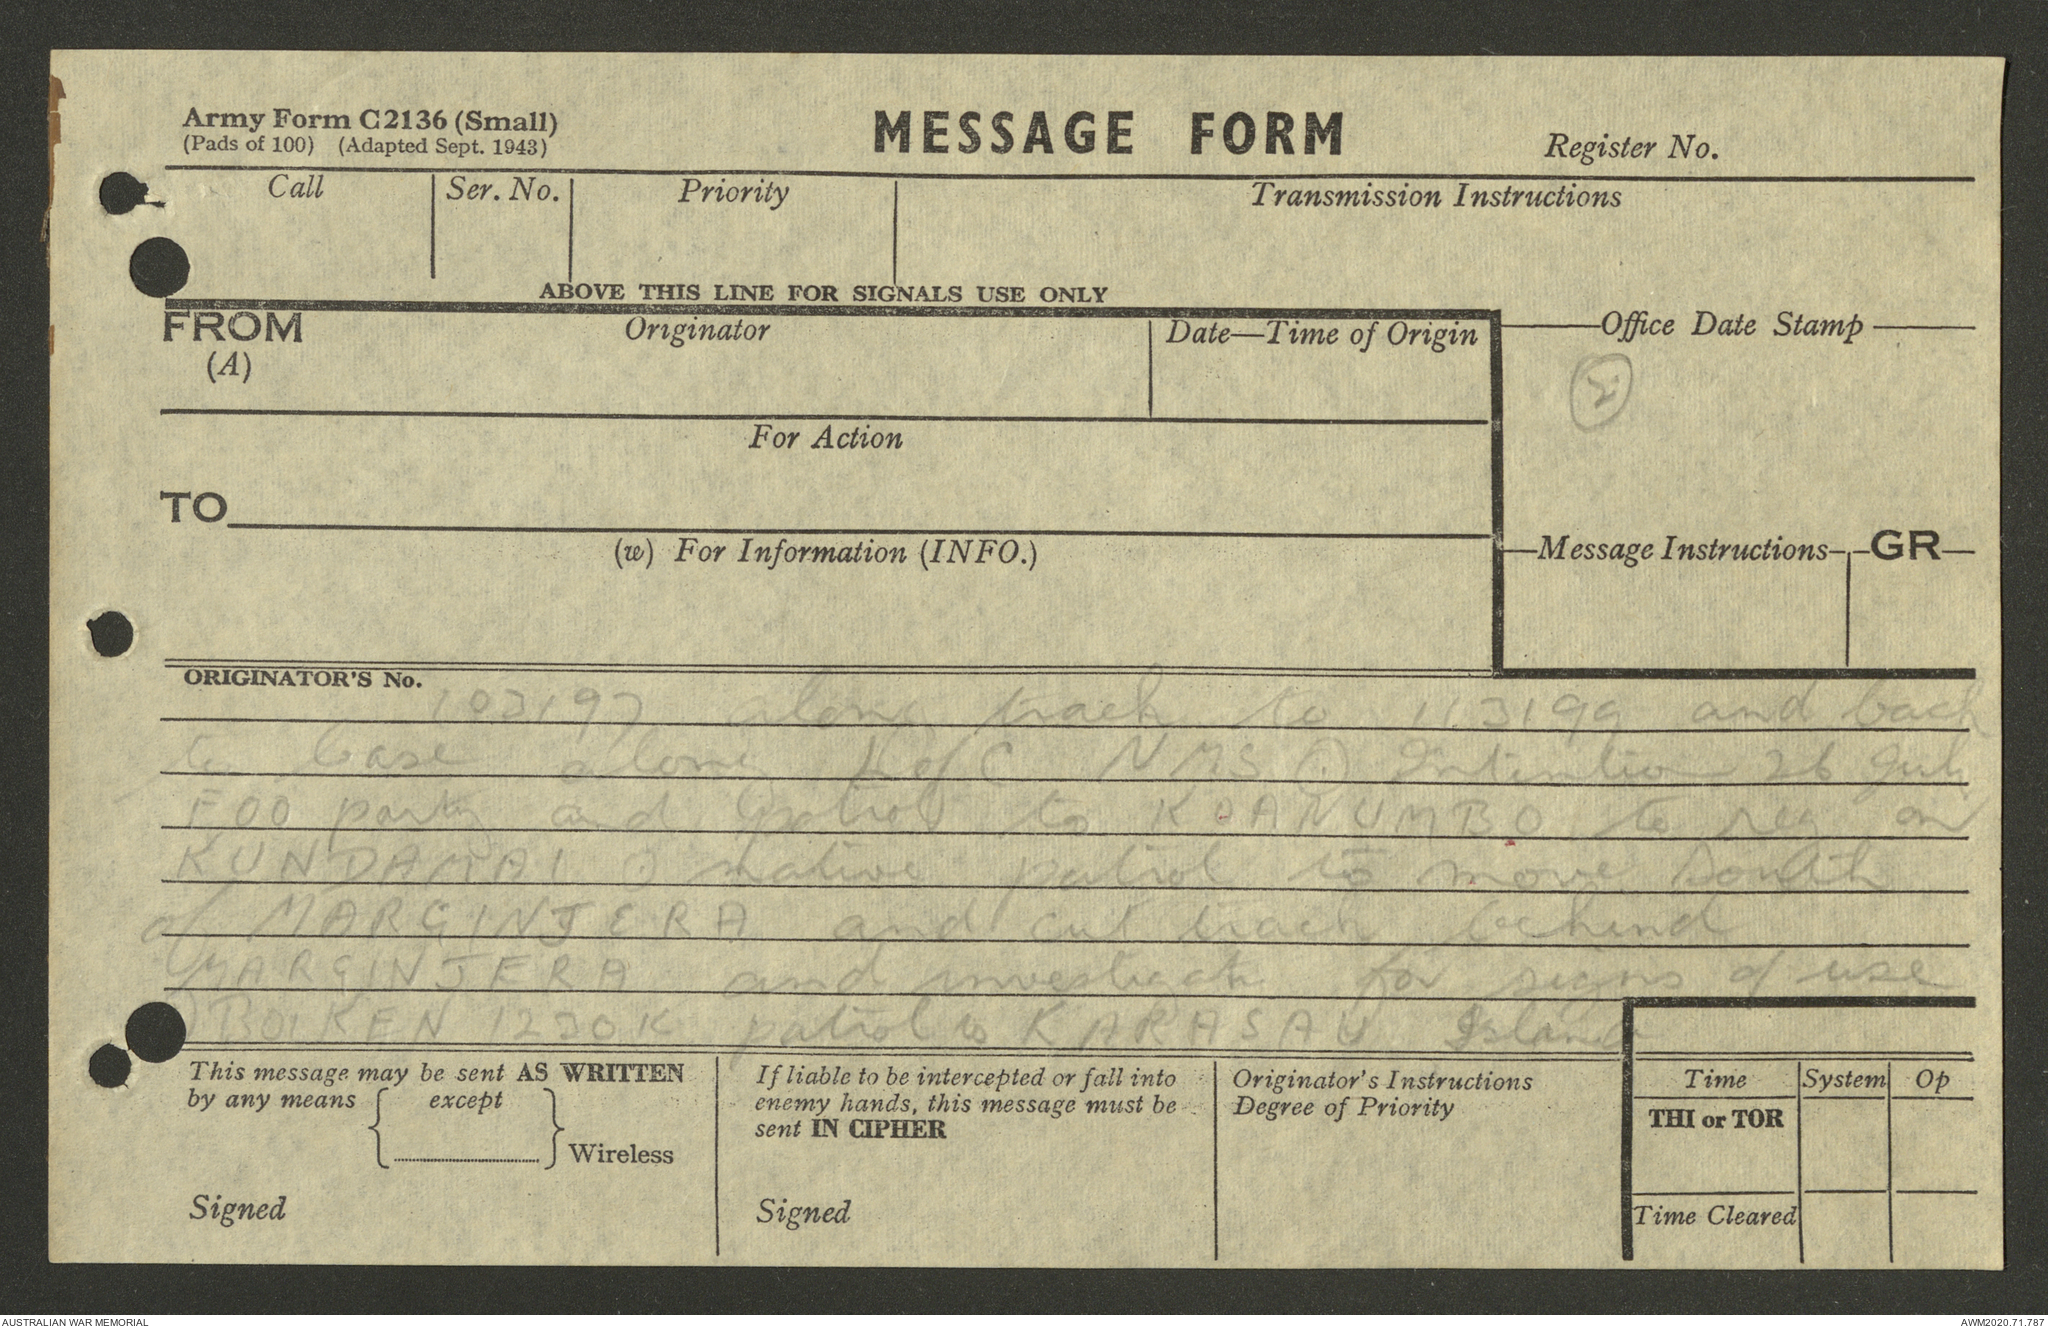 Army Form C2136 (Small)
(Pads of 100) (Adapted Sept. 1943)
MESSAGE FORM
Register No.
Call
Ser. No.
Priority
Transmission Instructions
ABOVE THIS LINE FOR SIGNALS USE ONLY
FROM
(A)
Originator
Date—Time of Origin
Office Date Stamp
2
For Action
TO
(w) For Information (INFO.)
Message Instructions
GR
ORIGINATOR'S No.
103197 along track to 113199 and back
to base along L of C NMS (.) Intention 26 July
FOO party and patrol to KOANUMBO to reg on
KUNDAMAI (.) native patrol to move South
of MARGINJERA and cut track behind
MARGINJERA and investigate for signs of use
BOIKEN 1230K patrol to KARASAU Island
This message may be sent AS WRITTEN
by any means except
Wireless
Signed
If liable to be intercepted or fall into
enemy hands, this message must be
sent IN CIPHER
Signed
Originator's Instructions
Degree of Priority
Time
System
Op
THI or TOR
Time Cleared
AUSTRALIAN WAR MEMORIAL
AWM2020.71.787